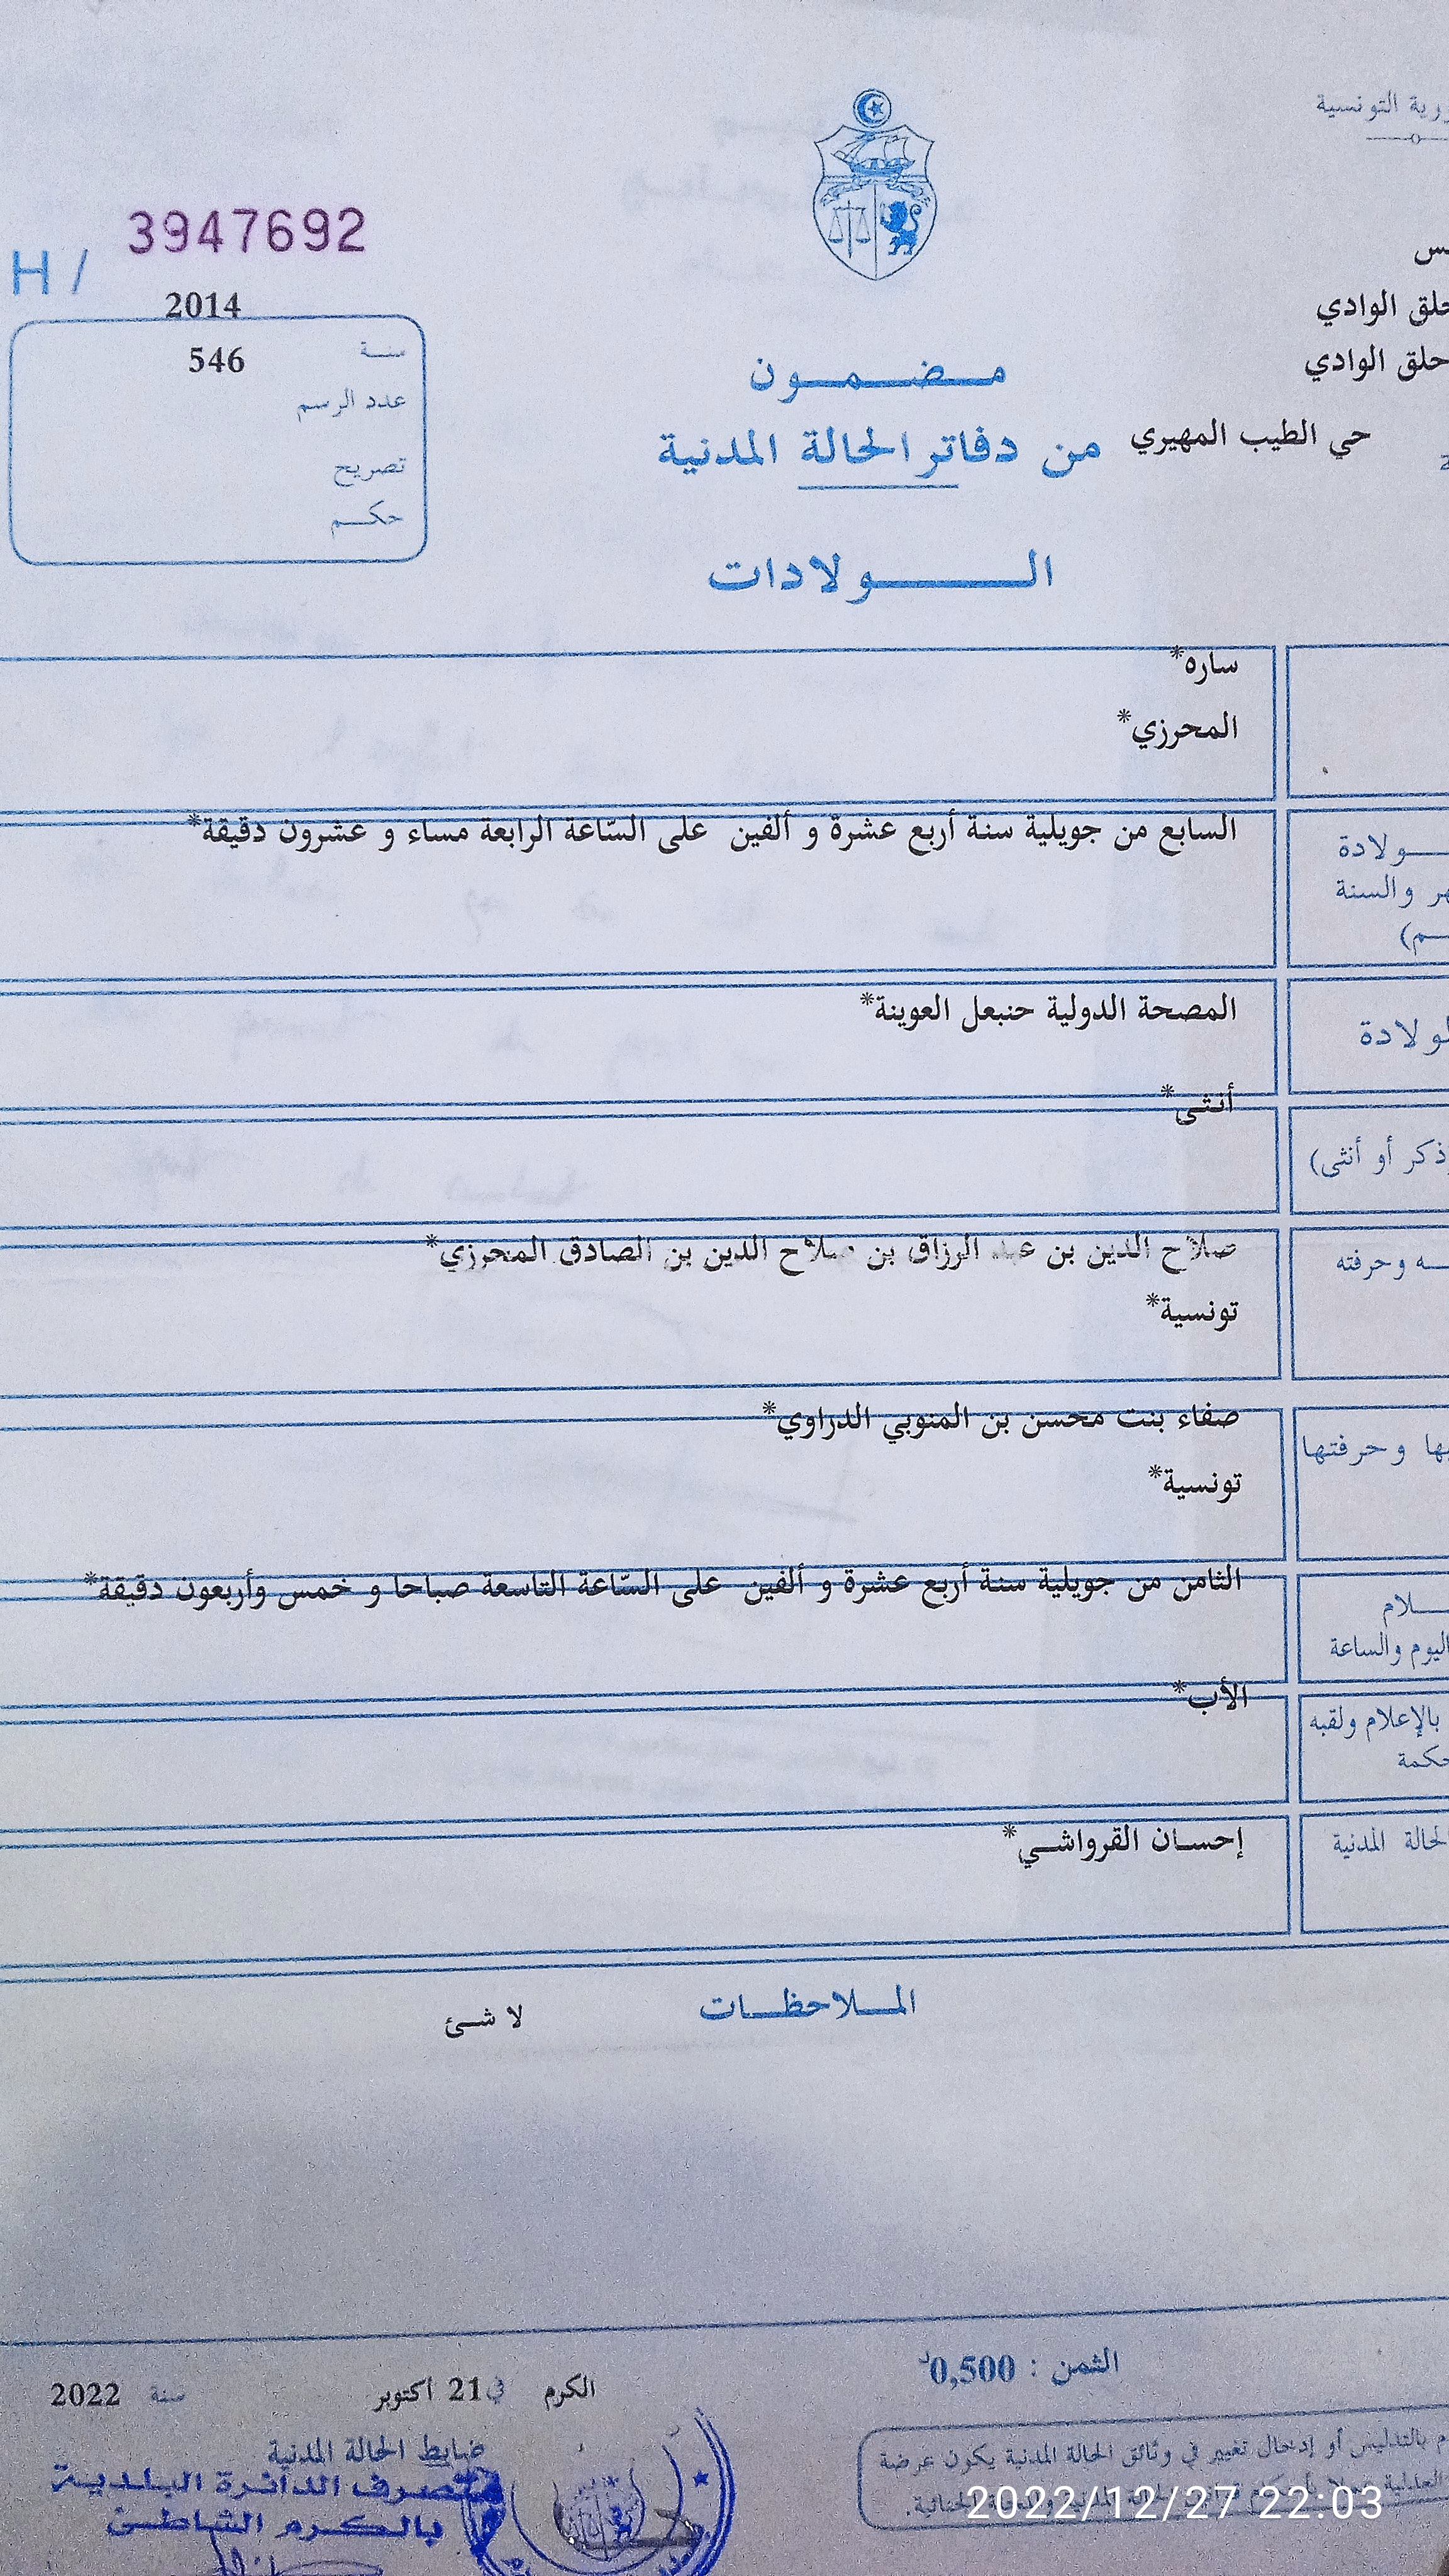 التونسية
3947692
H /
حلق الوادي
2014
سنة
546
حلق الوادي
عدد الرسم
مضمون
حي الطيب المهيري
من دفاتر الحالة المدنية
تصريح
حكم
الولادات
ساره*
المحرزي*
السابع من جويلية سنة أربع عشرة و ألفين على السّاعة الرابعة مساء و عشرون دقيقة*
ولادة
والسنة
المصحة الدولية حنبعل العوينة*
أنثى*
ذكر أو أنثى)
صلاح الدين بن عبد الرزاق بن صلاح الدين بن الصادق المحرزي*
وحرفته
تونسية*
صفاء بنت محسن بن المنوبي الدراوي*
وحرفتها
تونسية*
الثامن من جويلية سنة أربع عشرة و ألفين على السّاعة التاسعة صباحا و خمس وأربعون دقيقة*
اليوم والساعة
الأب*
بالإعلام ولقبه
إحسان القرواشي*
الحالة المدنية
الملاحظات
لا شئ
الثمن : 0,500د
الكرم في 21 اكتوبر سنة 2022
ضابط الحالة المدنية
متصرف الدائرة البلدية
بالكرم الشاطئ
بالتدليس أو إدخال تغيير في وثائق الحالة المدنية يكون عرضة
2022/12/27 22:03